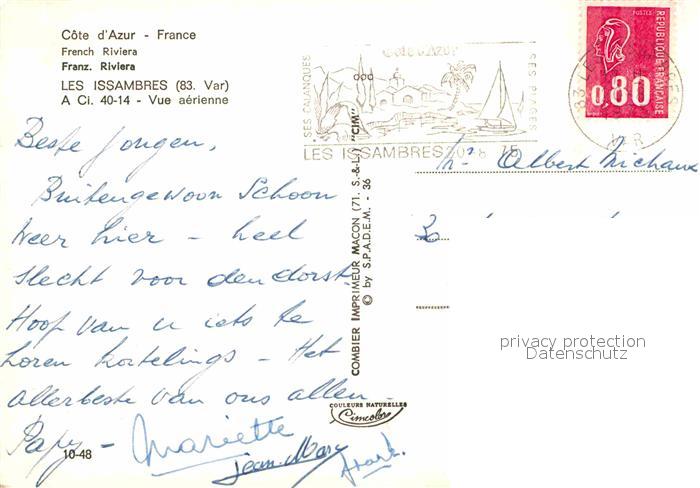 Côte d'Azur - France
French Riviera
Franz. Riviera
LES ISSAMBRES (83. Var)
A Ci. 40-14 - Vue aérienne
Beste Jongen,
Buitengewoon Schoon
weer hier - heel
slecht voor den dorst.
Hoop van u iets te
horen kortelings - Het
allerbeste van ons allen -
Papy - Mariette
Jean-Mary
Frank.
10-48
COMBIER IMPRIMEUR MACON (71. S.-&-L.) "CIM"
© by S.P.A.D.E.M. - 36
COULEURS NATURELLES
Cimcolor
SES CALANQUES
Côte d'Azur
SES PLAGES
LES ISSAMBRES
83
VAR
POSTES
REPUBLIQUE FRANÇAISE
0,80
Mr. Albert Michaux
B
privacy protection
Datenschutz